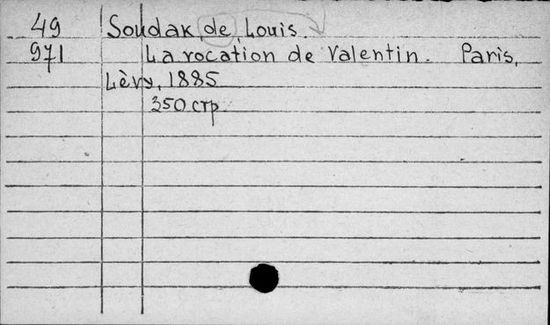 49 Soudak, de, Louis.
971 La vocation de Valentin. Paris,
Lèvy, 1885
350 стр.